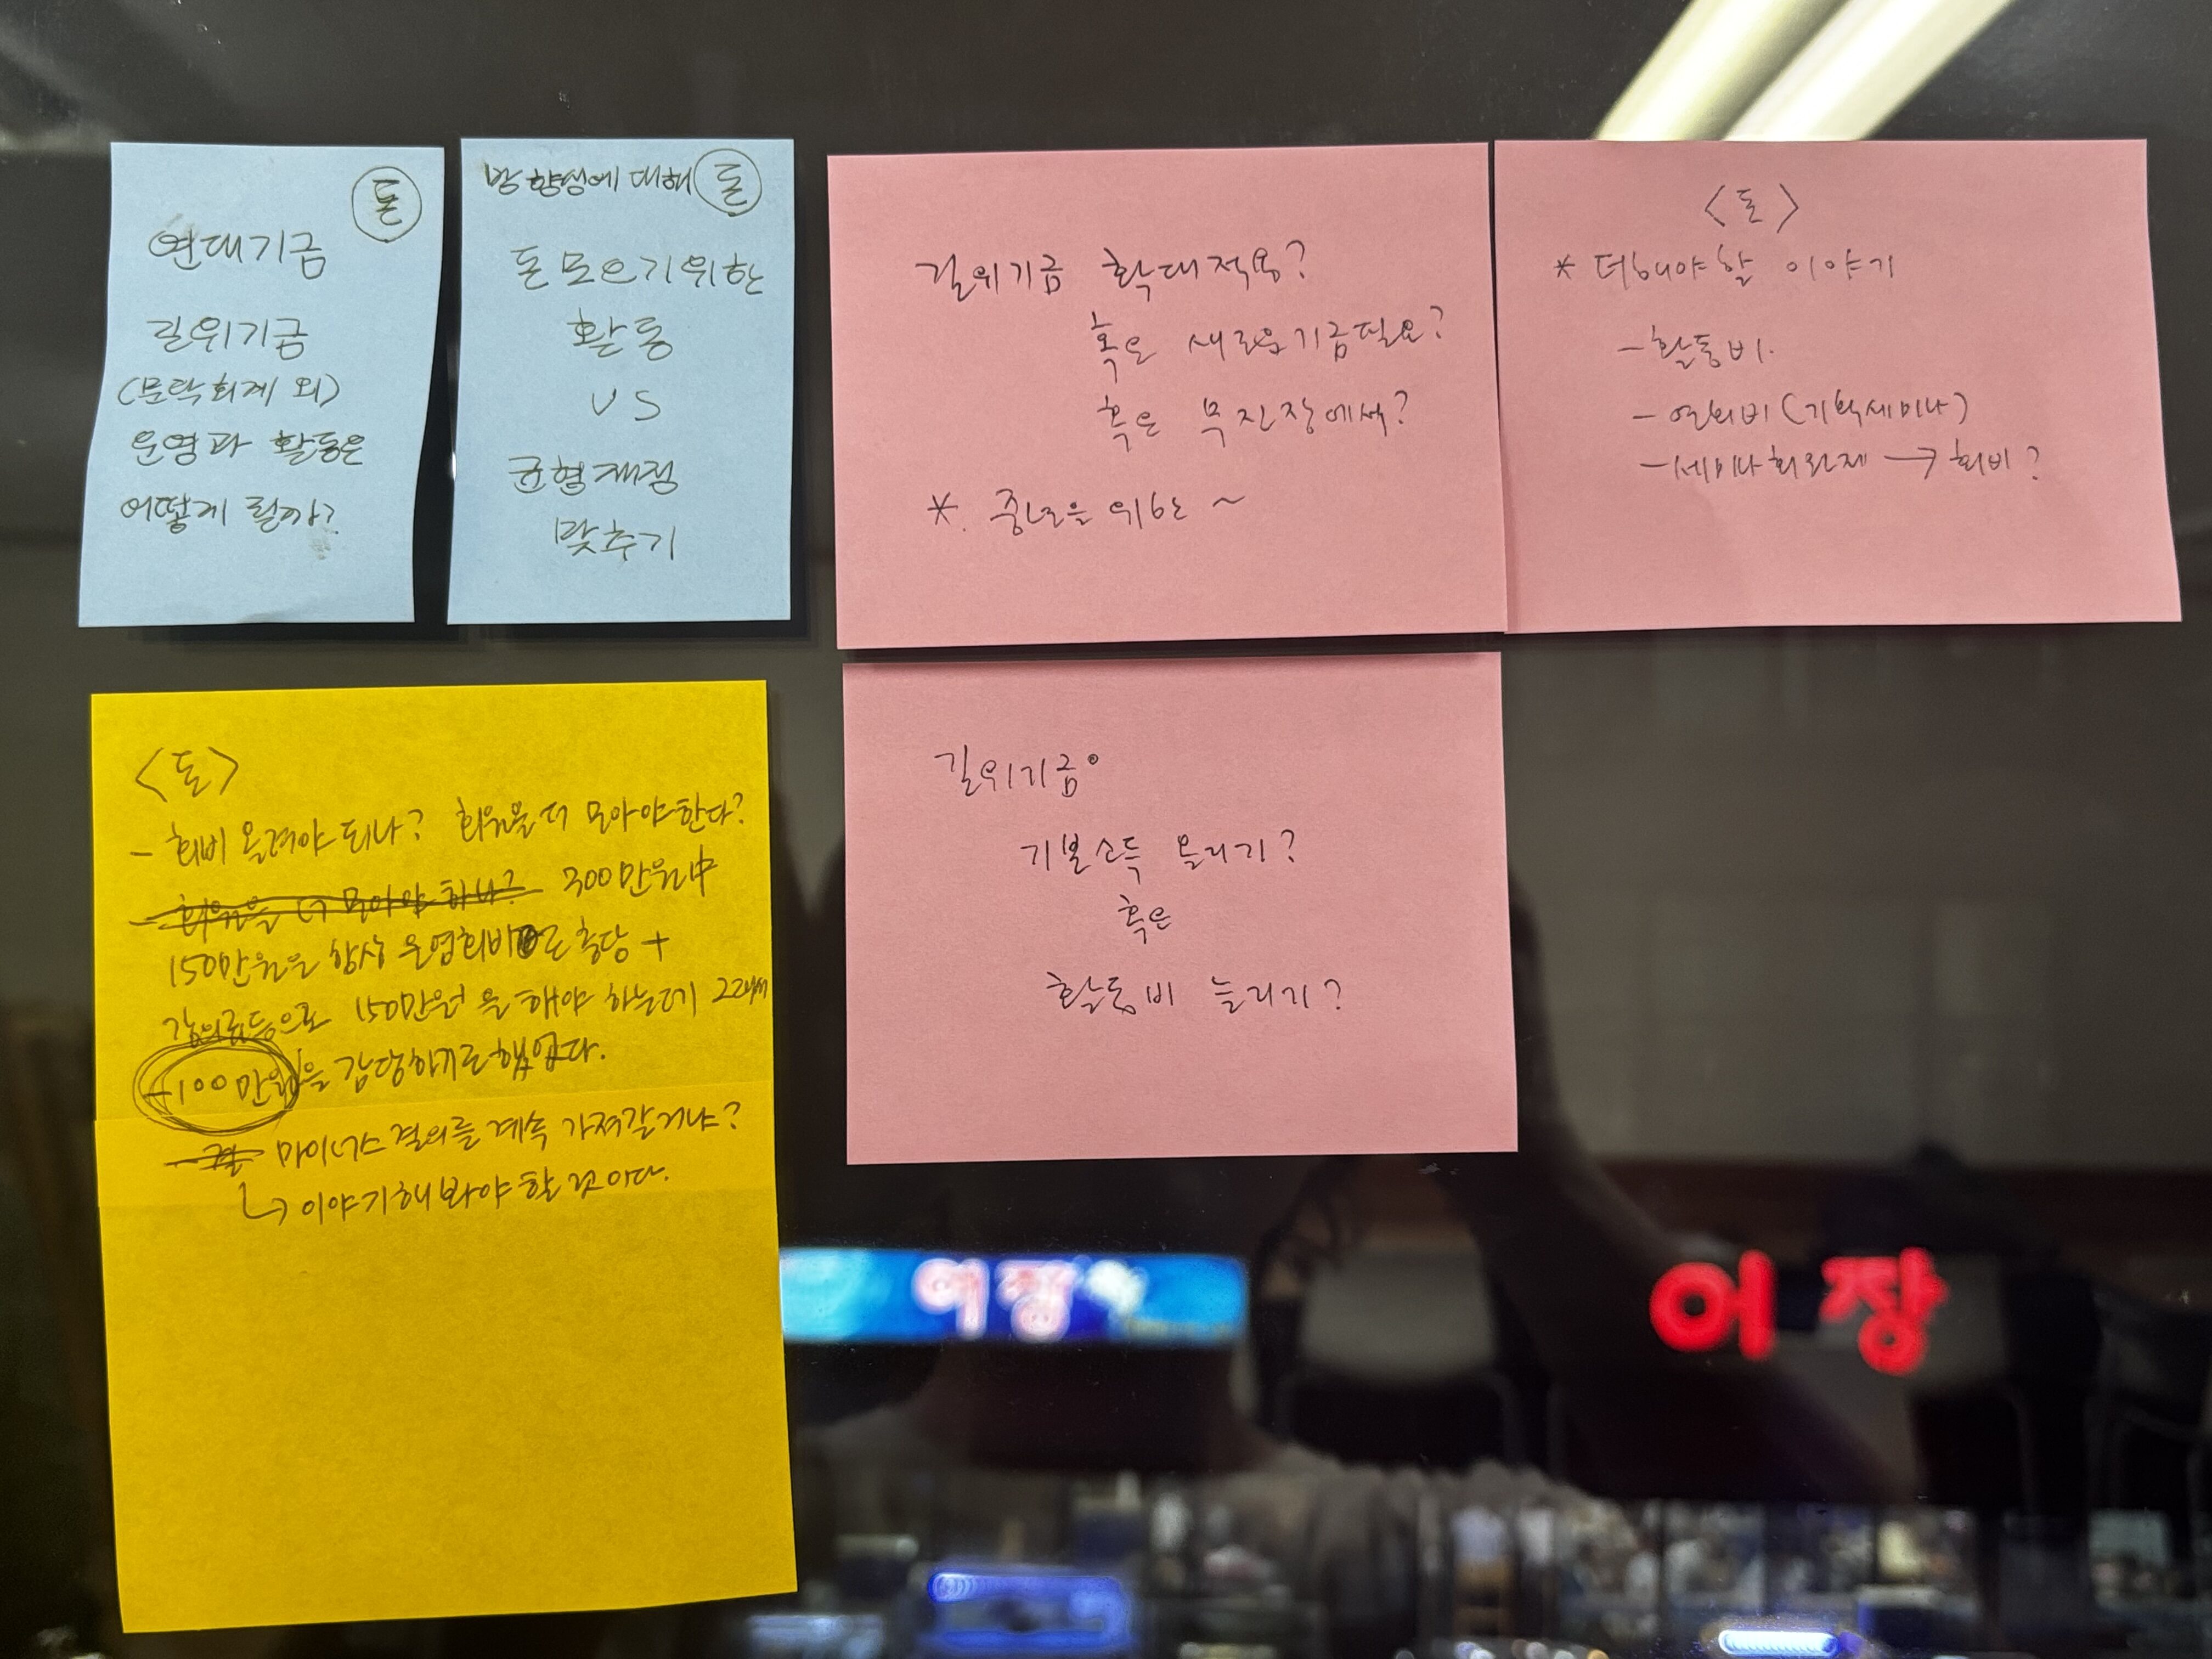 돈
연대기금
길위기금
(문탁회계 외)
운영과 활동은
어떻게 될까?
방향성에 대해 돈
돈 모으기 위한
활동
VS
균형재정
맞추기
길위기금 확대적용?
혹은 새로운 기금필요?
혹은 무진장에서?
* 중년을 위한 ~
<돈>
* 더해야 할 이야기
- 활동비.
- 연회비 (기획세미나)
- 세미나회원제 → 회비?
<돈>
- 회비 올려야 되나? 회원을 더 모아야 한다?
- 회원을 더 모아야 하나? 300만원中
150만원은 항상 운영회비로 충당 +
강의료등으로 150만원을 해야 하는데 22년에
-100만원을 감당하기로 했었다.
마이너스 결의를 계속 가져갈거냐?
↳ 이야기해봐야 할 것이다.
길위기금
기본소득 올리기?
혹은
활동비 늘리기?
어장
어장